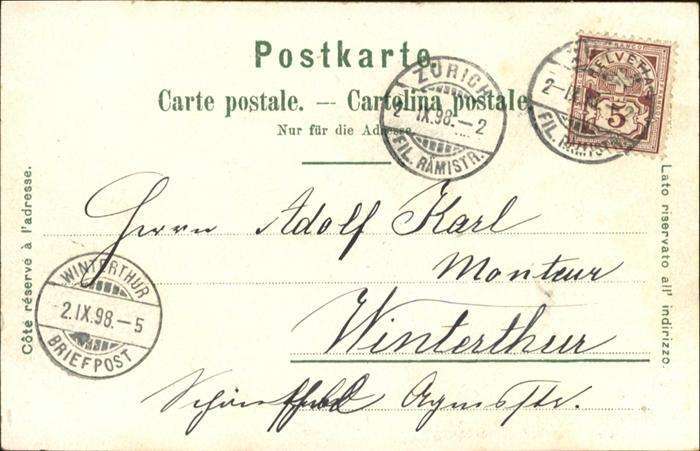 Postkarte.
Carte postale. — Cartolina postale.
Nur für die Adresse.
ZÜRICH
2.IX.98.–2
FIL. RÄMISTR.
HELVETIA
5
2–IX.98
FIL. RÄMISTR.
Côté réservé à l'adresse.
Lato riservato all' indirizzo
Herrn Adolf Karl
Monteur
Winterthur
Agnesstr.
WINTERTHUR
2.IX.98.–5
BRIEFPOST